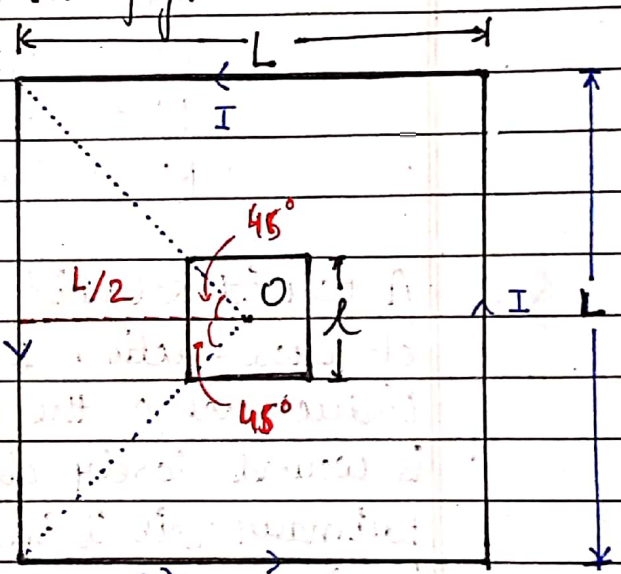 L
I
45°
L/2
O
l
I
L
45°